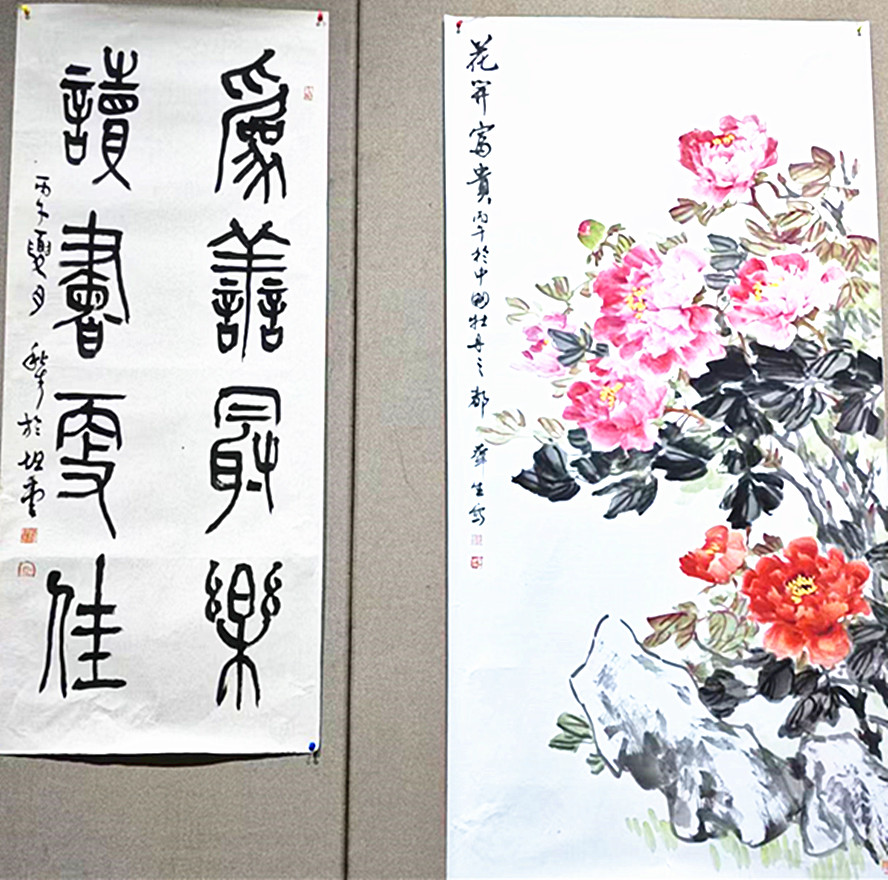 為善最樂
讀書更佳
丙午夏月 於坦書
花開富貴 丙午於中國牡丹之都 生寫